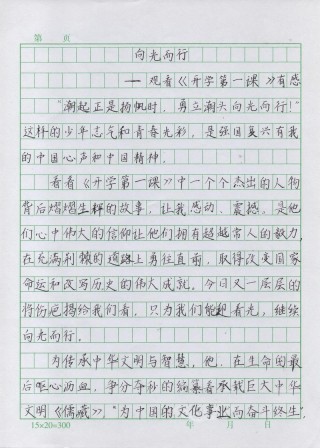 第 页
向光而行
——观看《开学第一课》有感
"潮起正是扬帆时，勇立潮头向光而行！"
这样的少年志气和青春光彩，是强国复兴有我
的中国心声和中国精神。
看着《开学第一课》中一个个杰出的人物
背后熠熠生辉的故事，让我感动、震撼。是他
们心中伟大的信仰让他们拥有超越常人的毅力，
在充满荆棘的道路上勇往直前，取得改变国家
命运和改写历史的伟大成就。今日又一层层的
将伤疤揭给我们看，只为我们能起看光，继续
向光而行。
为传承中华文明与智慧，他，在生命的最
后呕心沥血，争分夺秒的编纂着承载巨大中华
文明《儒藏》"为中国的文化事业而奋斗终生"，
15×20=300 年 月 日